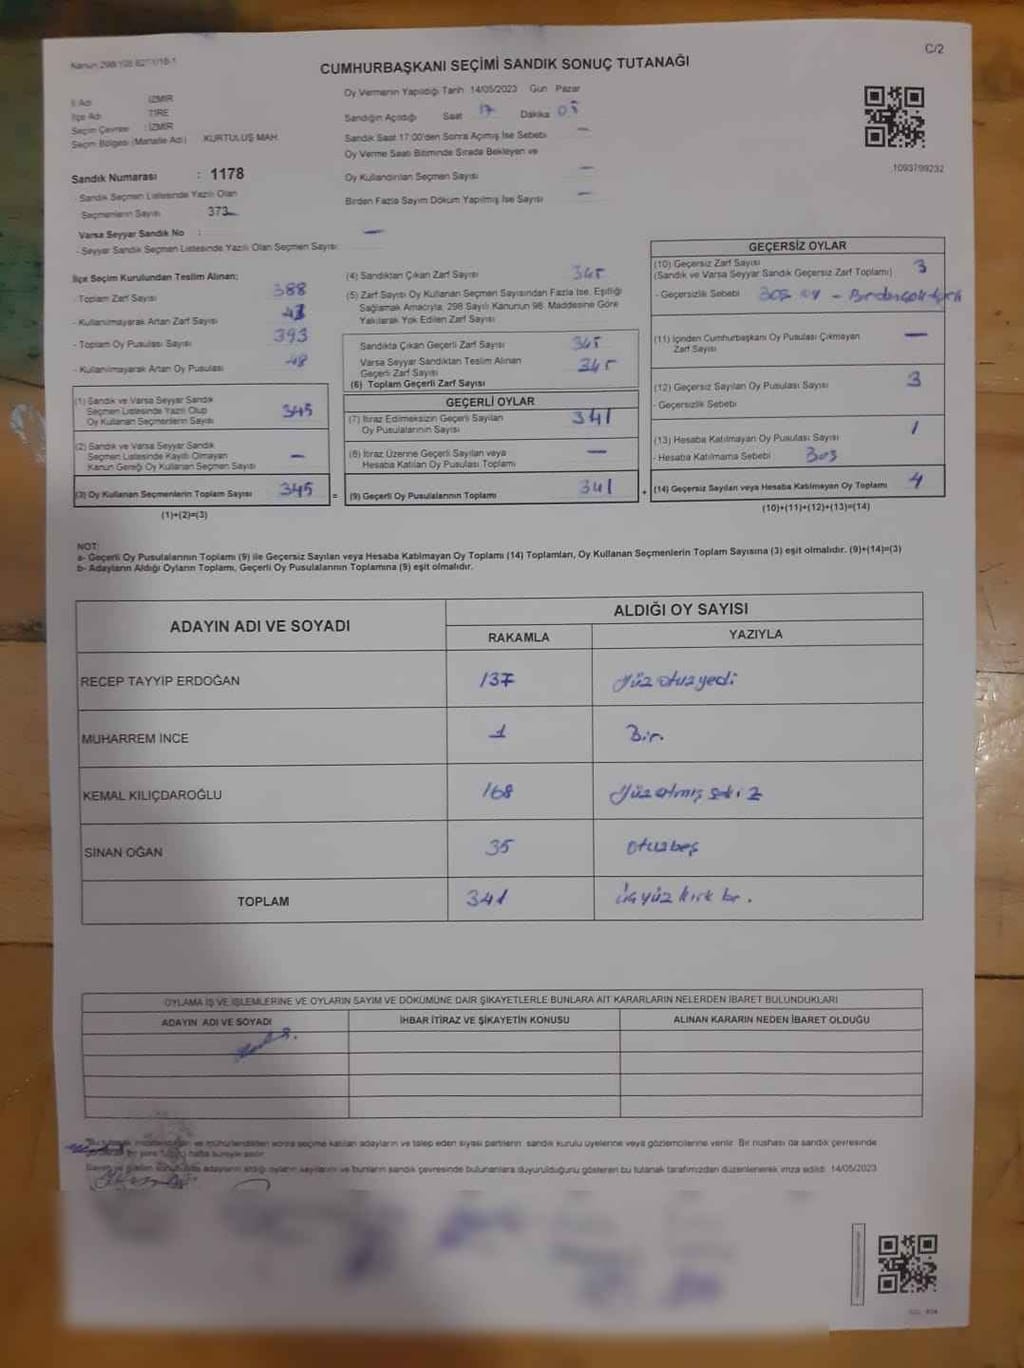 C/2
CUMHURBAŞKANI SEÇİMİ SANDIK SONUÇ TUTANAĞI
İl Adı İZMİR
İlçe Adı TİRE
Seçim Çevresi : İZMİR
Seçim Bölgesi (Mahalle Adı) KURTULUŞ MAH.
Sandık Numarası : 1178
Sandık Seçmen Listesinde Yazılı Olan
Seçmenlerin Sayısı 373
Varsa Seyyar Sandık No :
- Seyyar Sandık Seçmen Listesinde Yazılı Olan Seçmen Sayısı
Oy Vermenin Yapıldığı Tarih 14/05/2023 Gün Pazar
Sandığın Açıldığı Saat 17 Dakika 05
Sandık Saat 17:00'den Sonra Açılmış İse Sebebi —
Oy Verme Saati Bitiminde Sırada Bekleyen ve
Oy Kullandırılan Seçmen Sayısı —
Birden Fazla Sayım Döküm Yapılmış İse Sayısı —
1093799232
İlçe Seçim Kurulundan Teslim Alınan;
- Toplam Zarf Sayısı 388
- Kullanılmayarak Artan Zarf Sayısı 43
- Toplam Oy Pusulası Sayısı 393
- Kullanılmayarak Artan Oy Pusulası 48
(1) Sandık ve Varsa Seyyar Sandık
Seçmen Listesinde Yazılı Olup
Oy Kullanan Seçmenlerin Sayısı 345
(2) Sandık ve Varsa Seyyar Sandık
Seçmen Listesinde Kayıtlı Olmayan
Kanun Gereği Oy Kullanan Seçmen Sayısı —
(3) Oy Kullanan Seçmenlerin Toplam Sayısı 345 =
(1)+(2)=(3)
(4) Sandıktan Çıkan Zarf Sayısı 345
(5) Zarf Sayısı Oy Kullanan Seçmen Sayısından Fazla İse, Eşitliği
Sağlamak Amacıyla, 298 Sayılı Kanunun 98. Maddesine Göre
Yakılarak Yok Edilen Zarf Sayısı
Sandıkta Çıkan Geçerli Zarf Sayısı 345
Varsa Seyyar Sandıktan Teslim Alınan
Geçerli Zarf Sayısı
(6) Toplam Geçerli Zarf Sayısı 345
GEÇERLİ OYLAR
(7) İtiraz Edilmeksizin Geçerli Sayılan
Oy Pusulalarının Sayısı 341
(8) İtiraz Üzerine Geçerli Sayılan veya
Hesaba Katılan Oy Pusulası Toplamı —
(9) Geçerli Oy Pusulalarının Toplamı 341 +
GEÇERSİZ OYLAR
(10) Geçersiz Zarf Sayısı
(Sandık ve Varsa Seyyar Sandık Geçersiz Zarf Toplamı) 3
- Geçersizlik Sebebi
(11) İçinden Cumhurbaşkanı Oy Pusulası Çıkmayan
Zarf Sayısı —
(12) Geçersiz Sayılan Oy Pusulası Sayısı 3
- Geçersizlik Sebebi
(13) Hesaba Katılmayan Oy Pusulası Sayısı 1
- Hesaba Katılmama Sebebi Boş
(14) Geçersiz Sayılan veya Hesaba Katılmayan Oy Toplamı 4
(10)+(11)+(12)+(13)=(14)
NOT:
a- Geçerli Oy Pusulalarının Toplamı (9) ile Geçersiz Sayılan veya Hesaba Katılmayan Oy Toplamı (14) Toplamları, Oy Kullanan Seçmenlerin Toplam Sayısına (3) eşit olmalıdır. (9)+(14)=(3)
b- Adayların Aldığı Oyların Toplamı, Geçerli Oy Pusulalarının Toplamına (9) eşit olmalıdır.
ADAYIN ADI VE SOYADI ALDIĞI OY SAYISI
RAKAMLA YAZIYLA
RECEP TAYYİP ERDOĞAN 137 Yüz otuz yedi
MUHARREM İNCE 1 Bir.
KEMAL KILIÇDAROĞLU 168 Yüz altmış sekiz
SİNAN OĞAN 35 Otuzbeş
TOPLAM 341 üç yüz kırk bir.
OYLAMA İŞ VE İŞLEMLERİNE VE OYLARIN SAYIM VE DÖKÜMÜNE DAİR ŞİKAYETLERLE BUNLARA AİT KARARLARIN NELERDEN İBARET BULUNDUKLARI
ADAYIN ADI VE SOYADI İHBAR İTİRAZ VE ŞİKAYETİN KONUSU ALINAN KARARIN NEDEN İBARET OLDUĞU
ve mühürlendikten sonra seçime katılan adayların ve talep eden siyasi partilerin sandık kurulu üyelerine veya gözlemcilerine verilir. Bir nushası da sandık çevresinde
adayların aldığı oyların sayılarını ve bunların sandık çevresinde bulunanlara duyurulduğunu gösteren bu tutanak tarafımızdan düzenlenerek imza edildi. 14/05/2023